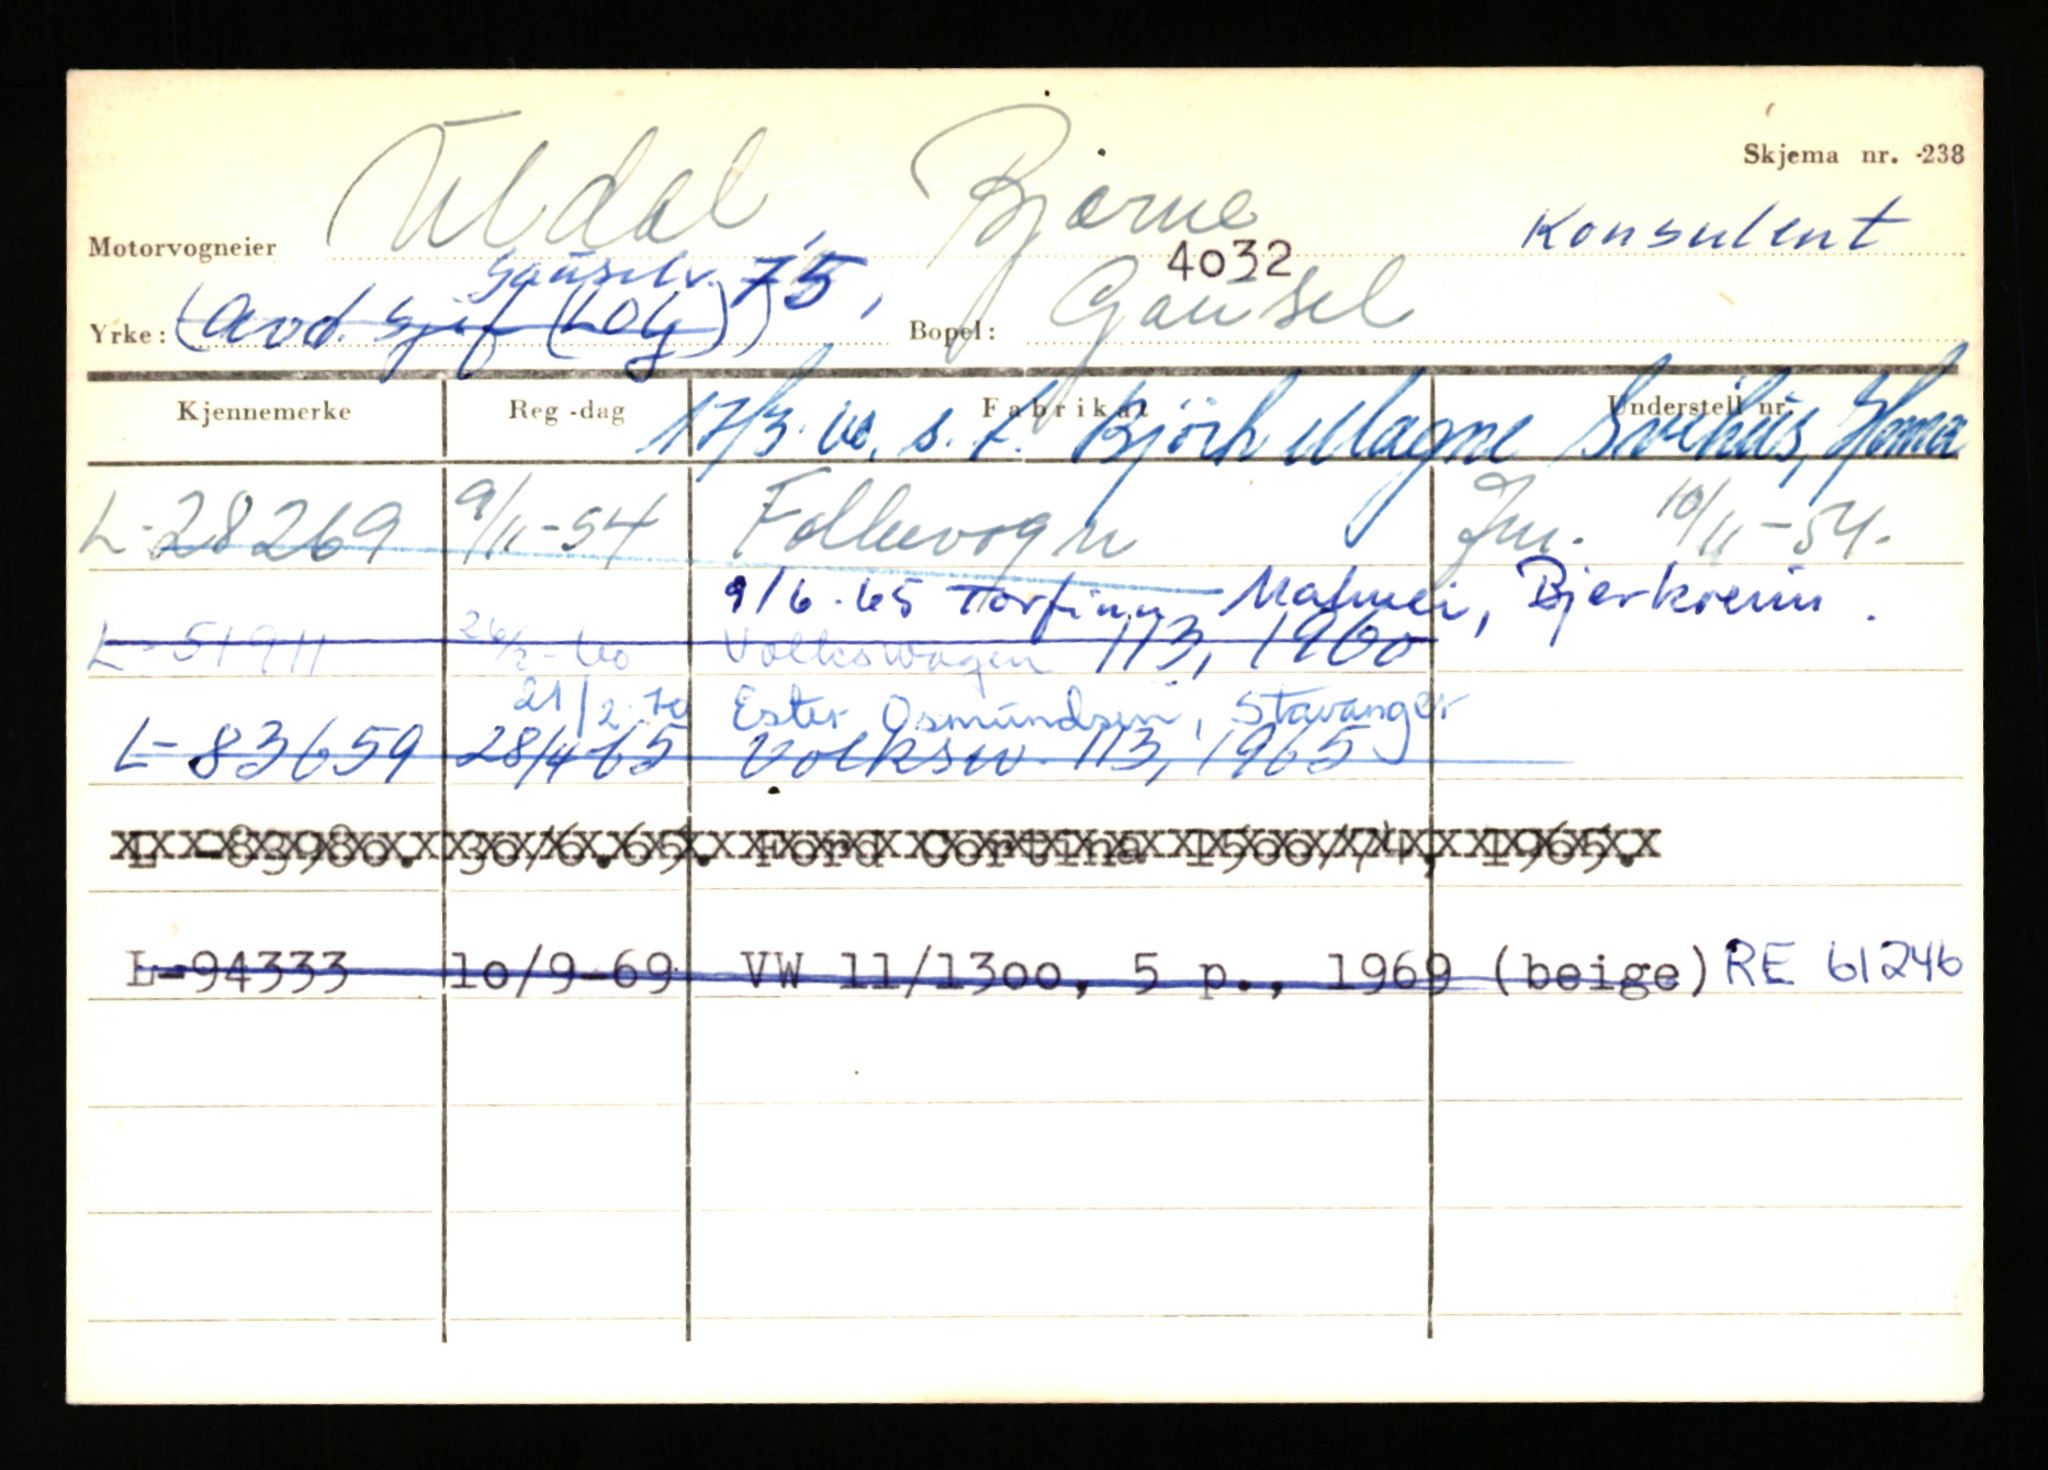 Skjema nr. -238
Motorvogneier Uldal, Bjarne Konsulent
Gauselv. 75, 4032
Yrke: (avd. sjef (LOG)) Bopel: Gausel
Kjennemerke Reg -dag Fabrikat Understell nr.
17/3.60. s. t. Björn Magne Svihus, Homa
L-28269 9/11-54 Folkevogn Inn. 10/11-54.
9/6.65 Torfinn Malmei, Bjerkreim.
L-51911 26/2-60 Volkswagen 113, 1960
21/2.70 Ester Osmundsen, Stavanger
L-83659 28/4-65 Volksw. 113, 1965
L-83980. 30/6.65. Ford Cortina 1500/74, 1965.
L-94333 10/9-69 VW 11/1300, 5 p., 1969 (beige) RE 61246